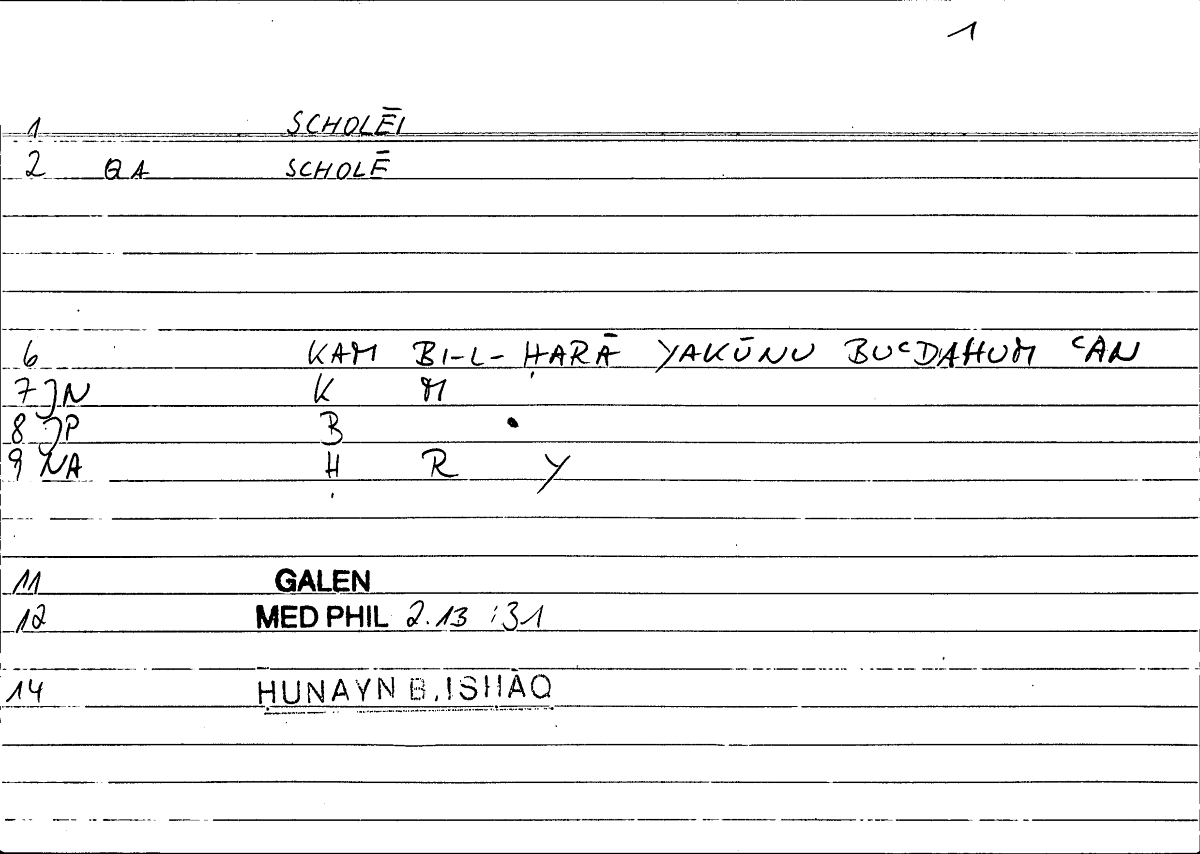 1
1 SCHOLĒI
2 QA SCHOLĒ
6 KAM BI-L-ḤARĀ YAKŪNU BUᶜDAHUM ᶜAN
7 JN K M
8 JP B
9 NA Ḥ R Y
11 GALEN
12 MED PHIL 2.13 :31
14 ḤUNAYN B. ISḤĀQ